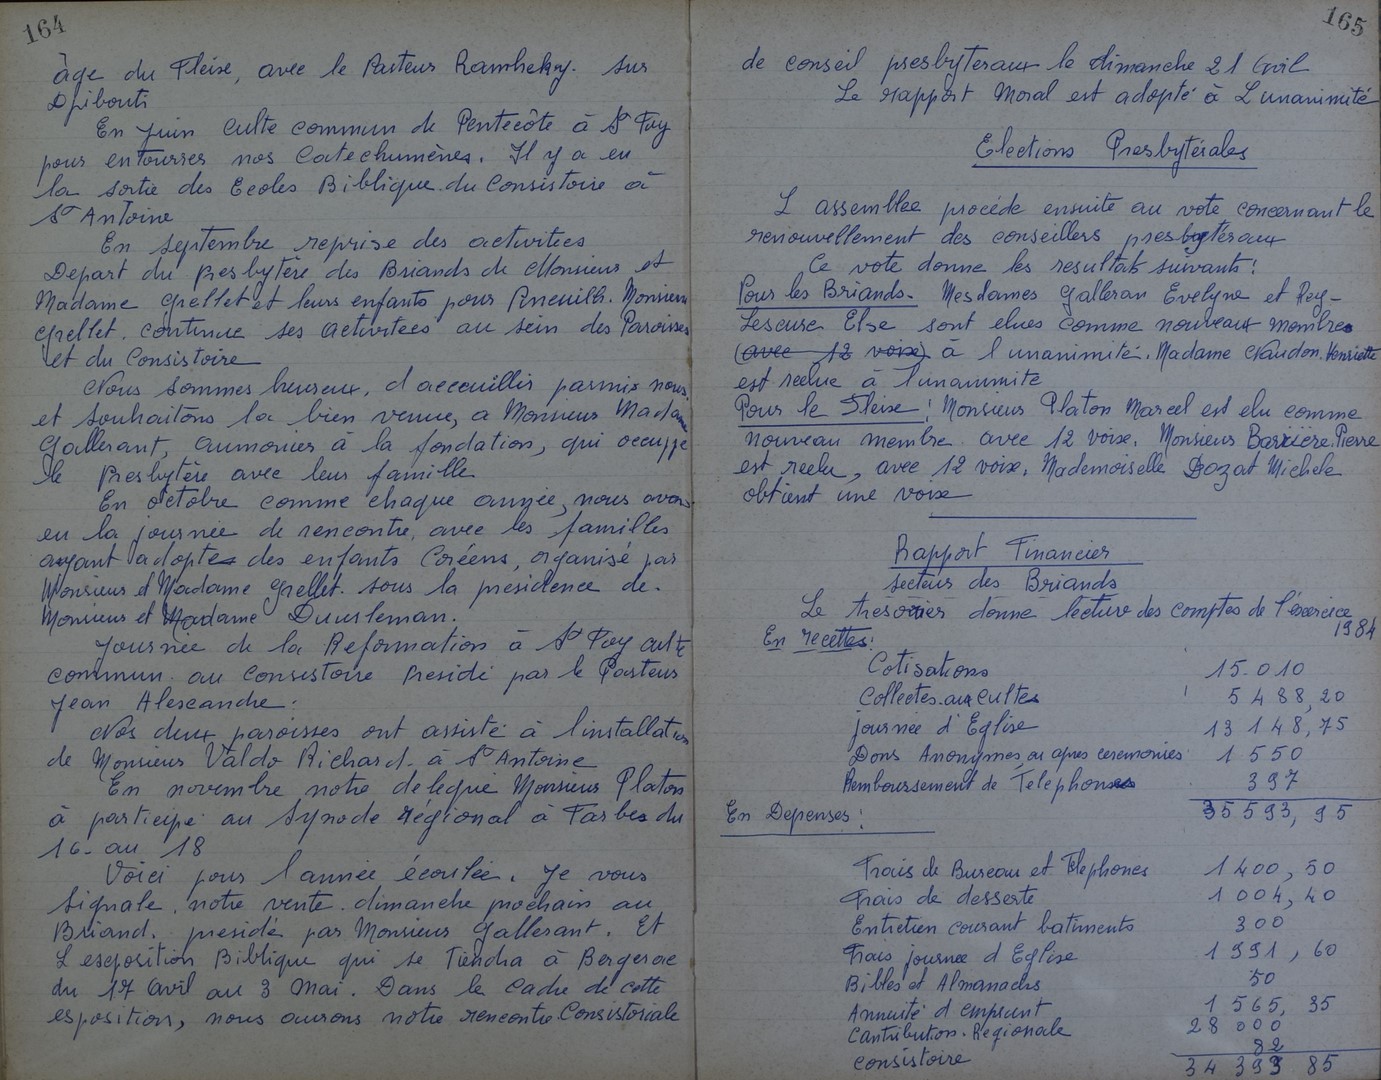 164
âge du Fleix, avec le Pasteur Ramheky. sur
Djibouti
En Juin culte commun de Pentecôte à Ste Foy
pour entourrer nos Catechumènes. Il y a eu
la sortie des Ecoles Biblique du Consistoire à
St Antoine
En septembre reprise des activitees
Depart du presbytère des Briands de Monsieur et
Madame Grellet et leurs enfants pour Pineuilh. Monsieur
Grellet. continue ses activitees au sein des Paroisses
et du Consistoire
Nous sommes heureux, d'accueillir parmis nous,
et souhaitons la bien venue, a Monsieur Madame
Gallerant, aumonier à la fondation, qui occuppe
le Presbytère avec leur famille
En octobre comme chaque année, nous avons
eu la journée de rencontre, avec les familles
ayant adoptes des enfants Coréens, organisé par
Monsieur et Madame Grellet. sous la presidence de.
Monsieur et Madame
Journée de la Reformation à Ste Foy culte
commun. au Consistoire Presidé par le Pasteur
Jean Alexandre:
Nos deux paroisses ont assisté à l'installation
de Monsieur Valdo Richard. à St Antoine
En novembre notre delegué Monsieur Platon
à participé au Synode Régional à Tarbes du
16. au 18
Voici pour l'année écoulée. Je vous
signale. notre vente. dimanche prochain au
Briand. presidé par Monsieur Gallerant. Et
L exposition Biblique qui se Tiendra à Bergerac
du 17 Avril au 3 Mai. Dans le Cadre de cette
exposition, nous aurons notre rencontre Consistoriale
165
de conseil presbyteraux le dimanche 21 Avril
Le rapport Moral est adopté à L'unanimité
Elections Presbytérales
L assemblee procéde ensuite au vote concernant le
renouvellement des conseillers presbytéraux
Ce vote donne les resultats suivants:
Pour les Briands. Mesdames Galleran Evelyne et Rey-
Lescure Else sont elues comme nouveaux membres
(avec 12 voix) à l unanimité. Madame Naudon. Henriette
est reelue à l'unanimite
Pour le Fleix: Monsieur Platon Marcel est elu comme
nouveau membre avec 12 voix. Monsieur Barrière. Pierre
est reelu, avec 12 voix. Mademoiselle Dozat Michele
obtient une voix
Rapport Financier
secteur des Briands
Le tresorier donne lecture des comptes de l'exercice
1984
En recettes:
Cotisations 15.010
Collectes aux cultes 5 488,20
journée d'Eglise 13 148,75
Dons Anonymes, ou apres ceremonies 1 550
Remboursement de Telephones 397
35 593, 95
En Depenses:
Frais de Bureau et Telephones 1 400, 50
Frais de desserte 1 004, 40
Entretien courant batiments 300
Frais journee d Eglise 1 991, 60
Bibles et Almanachs 50
Annuité d emprunt 1 565, 35
Contribution. Regionale 28 000
consistoire 82
34 393 85